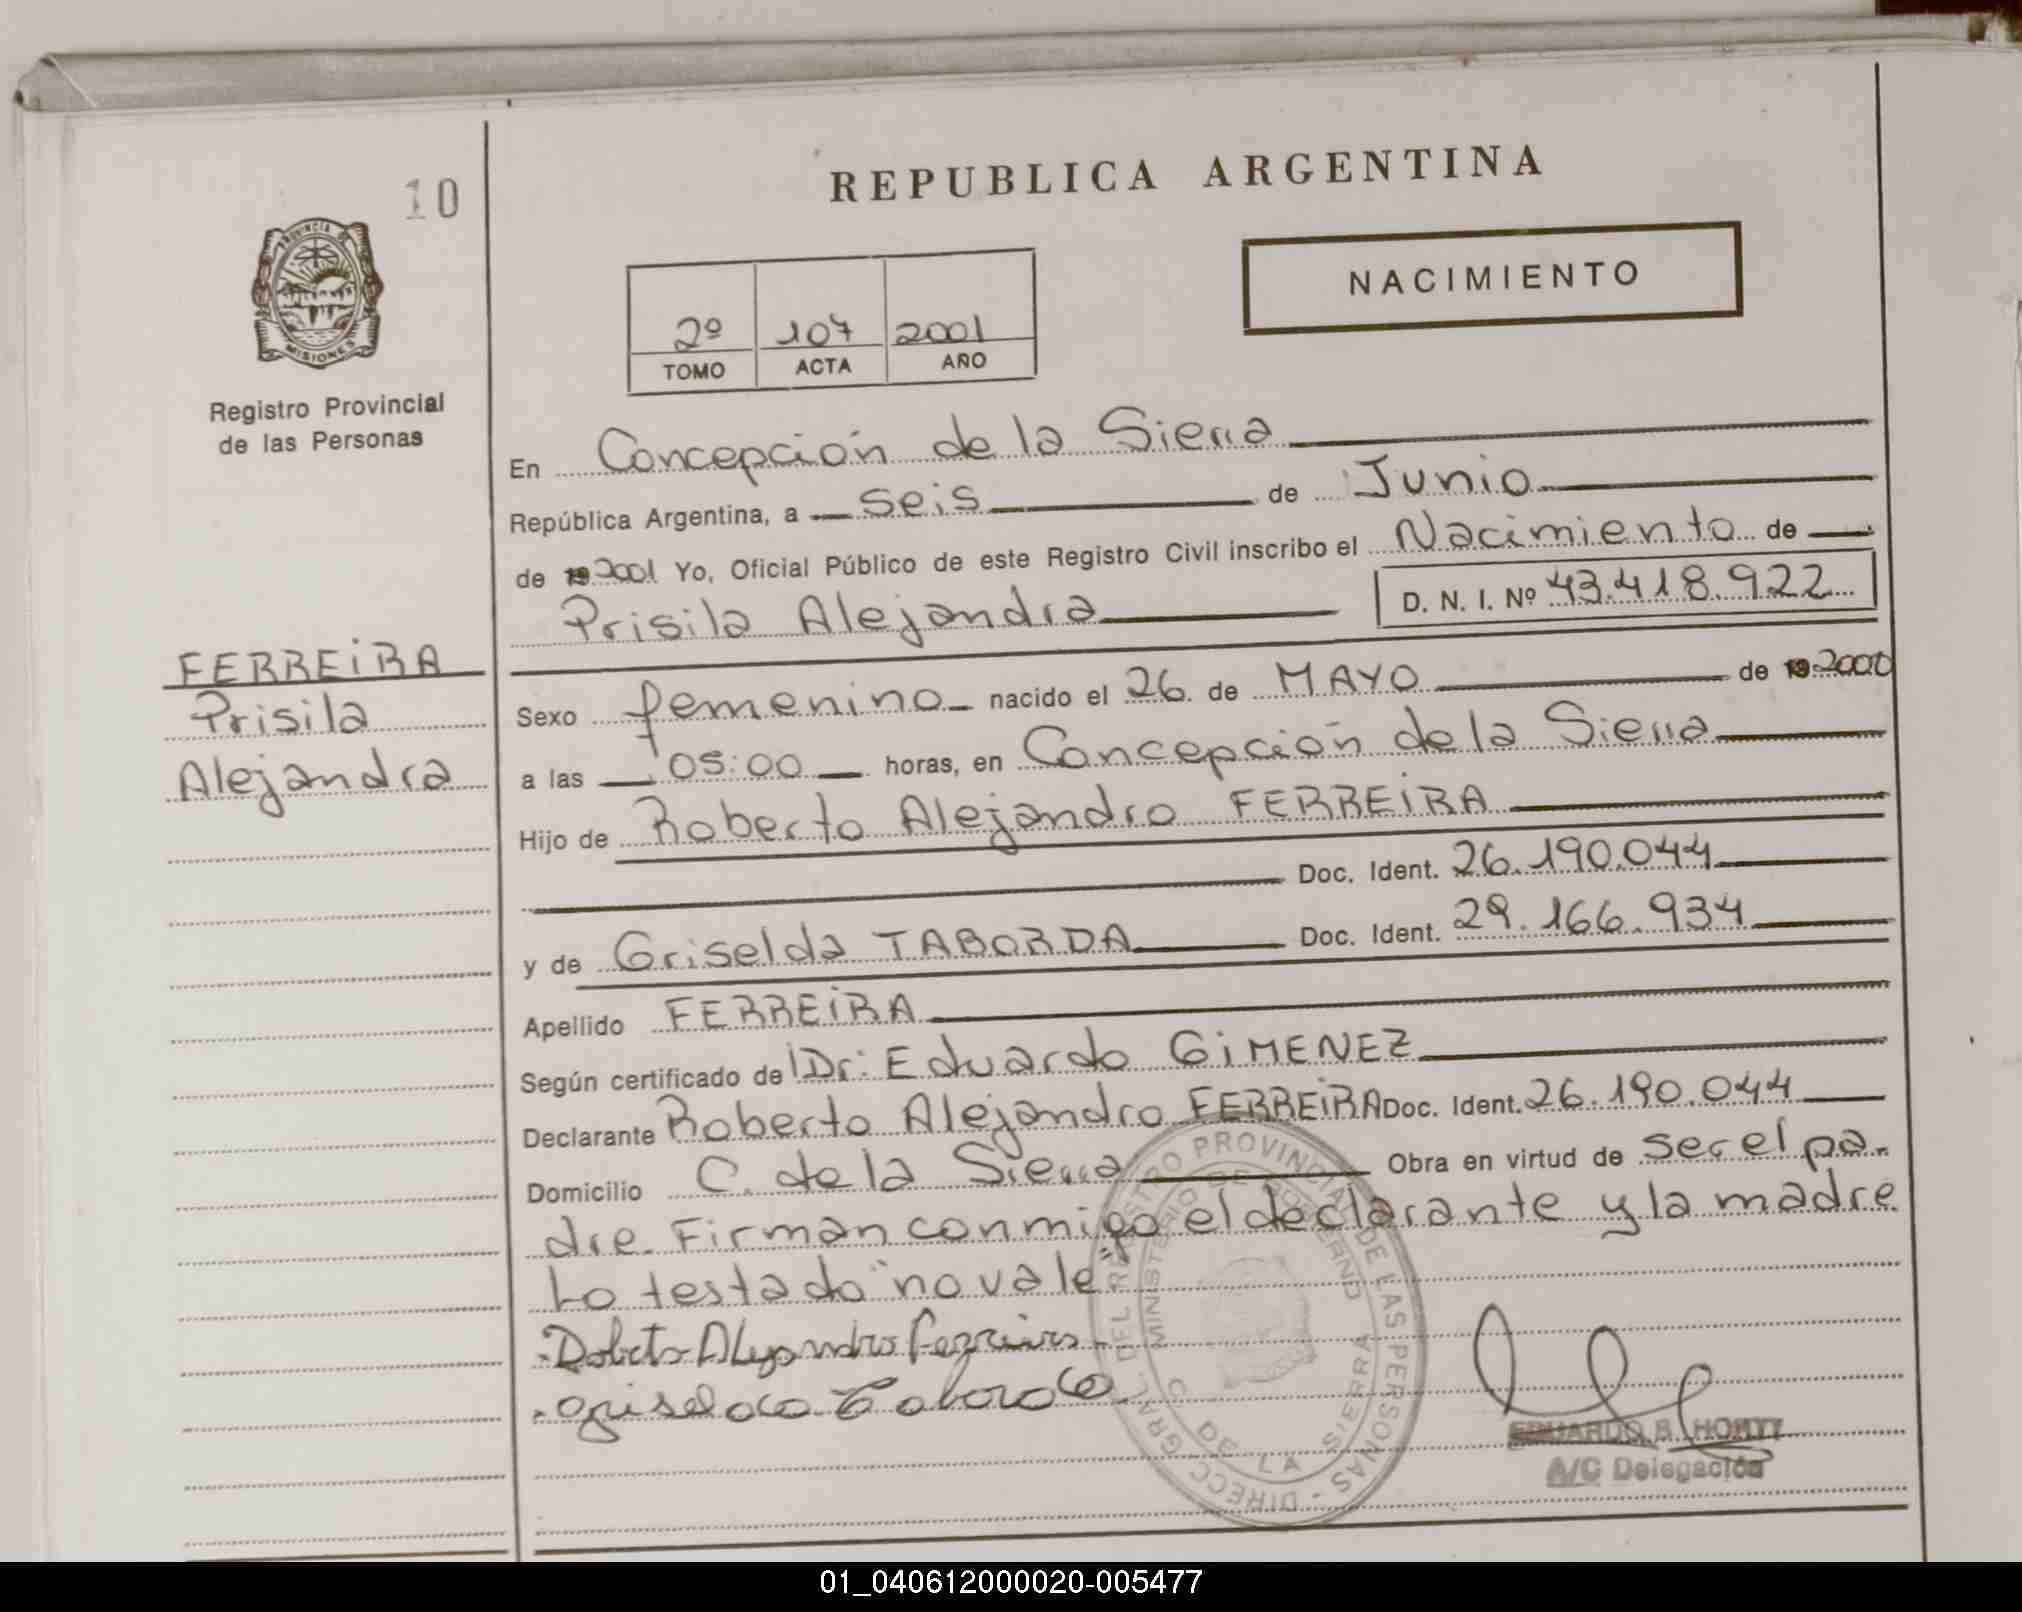 REPUBLICA ARGENTINA
10
PROVINCIA DE
MISIONES
Registro Provincial
de las Personas
NACIMIENTO
2º 107 2001
TOMO ACTA AÑO
En Concepción de la Sierra
República Argentina, a seis de Junio
de 19 2001 Yo, Oficial Público de este Registro Civil inscribo el Nacimiento de
Prisila Alejandra D. N. I. Nº 43.418.922
FERREiRA
Prisila
Alejandra
Sexo femenino nacido el 26 de MAYO de 19 2000
a las 05:00 horas, en Concepción de la Sierra
Hijo de Roberto Alejandro FERREiRA
Doc. Ident. 26.190.044
y de Griselda TABORDA Doc. Ident. 29.166.934
Apellido FERREiRA
Según certificado de Dr: Eduardo GiMENEZ
Declarante Roberto Alejandro FERREiRA Doc. Ident. 26.190.044
Domicilio C. de la Sierra Obra en virtud de ser el pa-
dre. Firman conmigo el declarante y la madre.
Lo testado "no vale"
Roberto Alejandro Ferreira
Griselda Taborda
DIRECC. GRAL. DEL REGISTRO PROVINCIAL DE LAS PERSONAS -
MINISTERIO DE GOBIERNO
C. DE LA SIERRA
EDUARDO R. HORTT
A/C Delegación
01_040612000020-005477